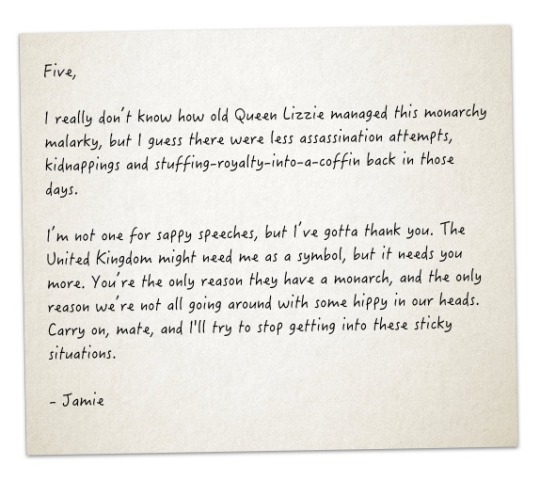 Five,
I really don't know how old Queen Lizzie managed this monarchy
malarky, but I guess there were less assassination attempts,
kidnappings and stuffing-royalty-into-a-coffin back in those
days.
I'm not one for sappy speeches, but I've gotta thank you. The
United Kingdom might need me as a symbol, but it needs you
more. You're the only reason they have a monarch, and the only
reason we're not all going around with some hippy in our heads.
Carry on, mate, and I'll try to stop getting into these sticky
situations.
- Jamie